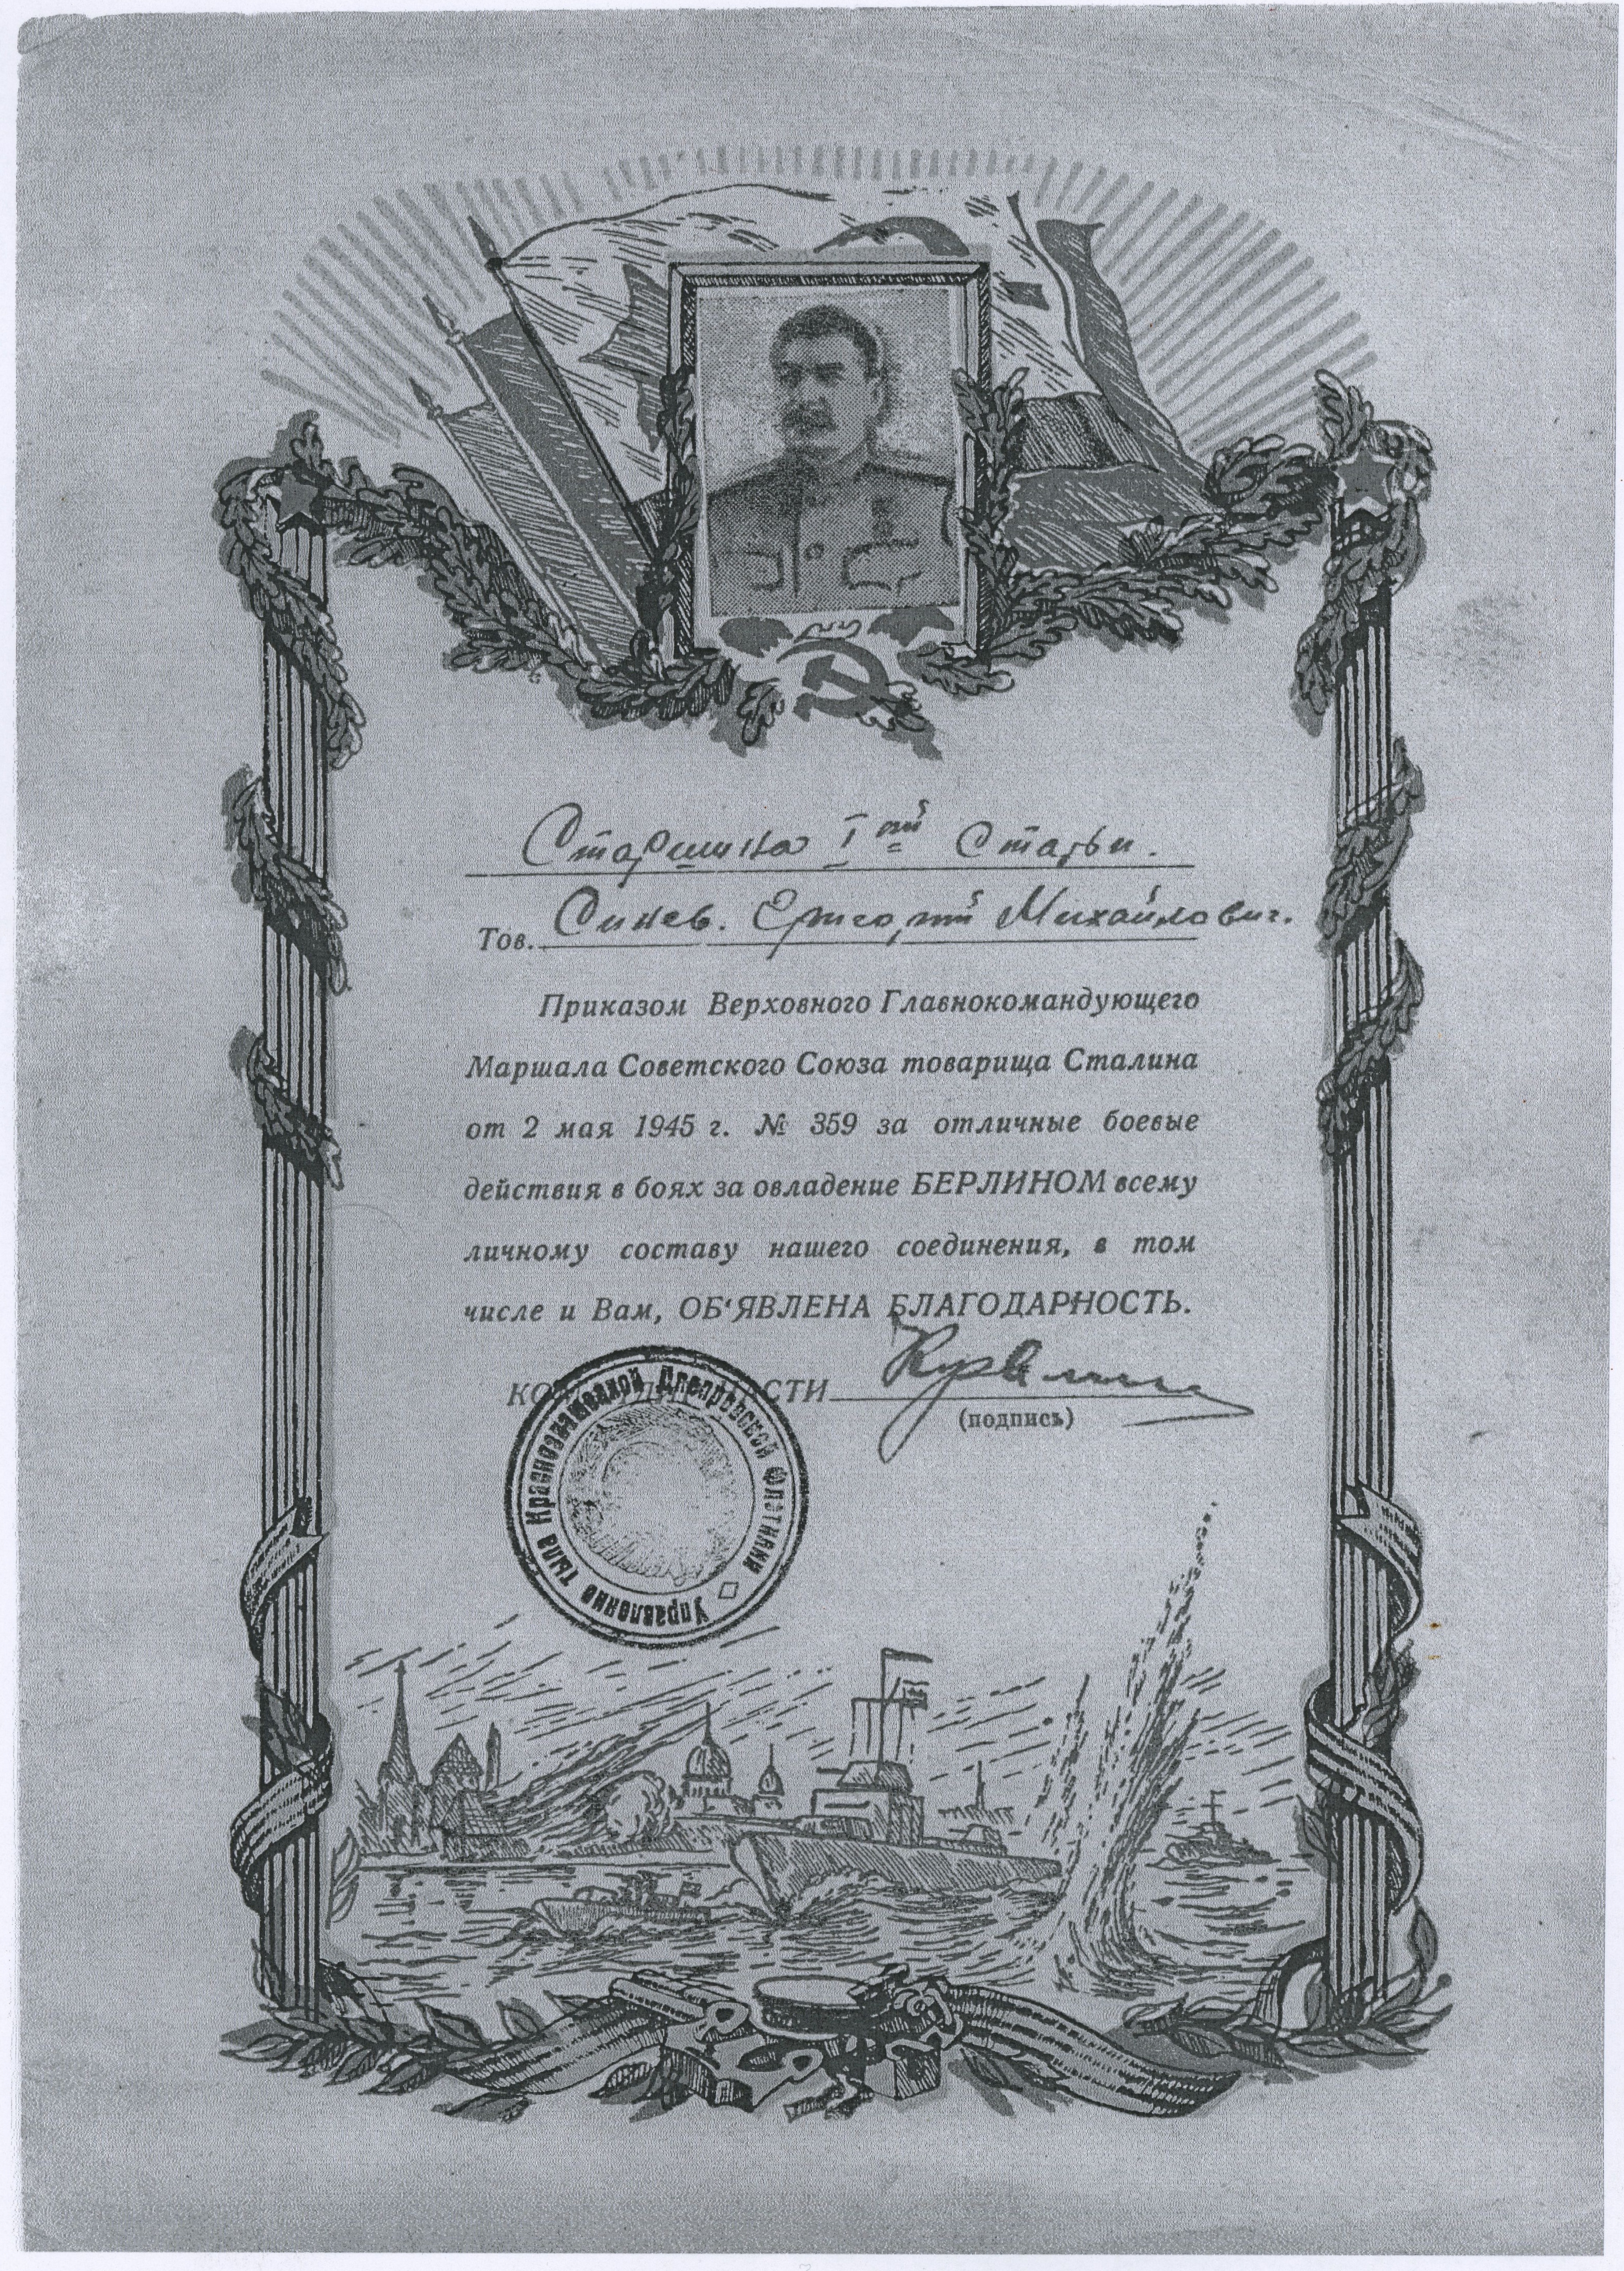 Старшина Iой Статьи.
Тов. Синев. Григорий Михайлович.
Приказом Верховного Главнокомандующего
Маршала Советского Союза товарища Сталина
от 2 мая 1945 г. № 359 за отличные боевые
действия в боях за овладение БЕРЛИНОМ всему
личному составу нашего соединения, в том
числе и Вам, ОБ'ЯВЛЕНА БЛАГОДАРНОСТЬ.
ЧАСТИ
(подпись)
Управление тыла Краснознаменной Днепровской Флотилии